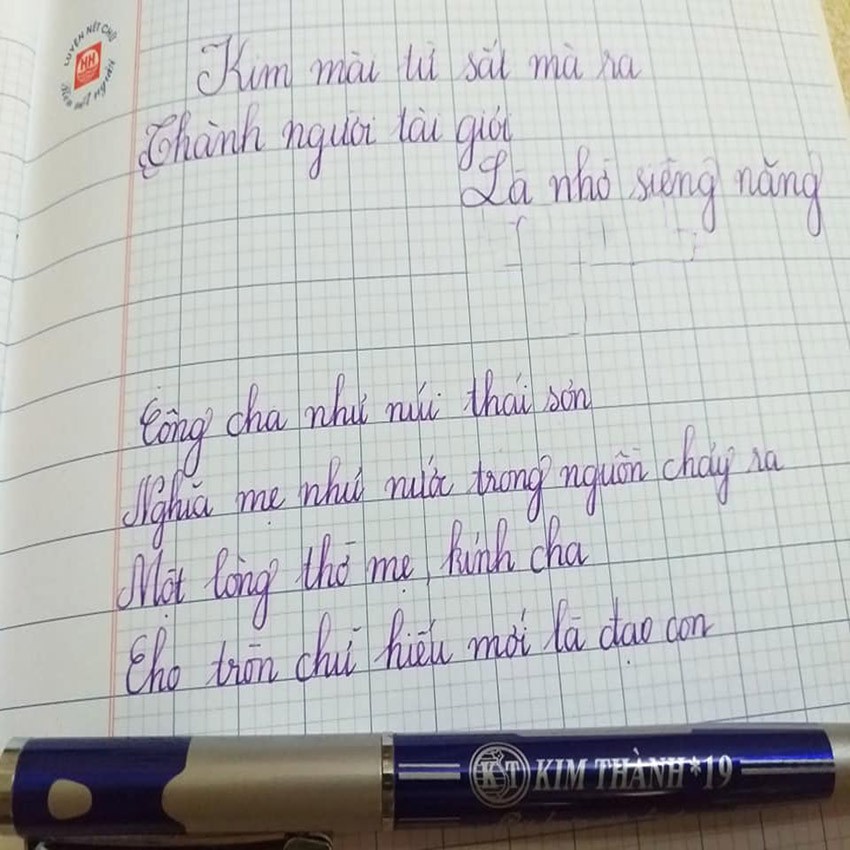 LUYỆN NÉT CHỮ
HH
Rèn nết người
Kim mài từ sắt mà ra
Thành người tài giỏi
Là nhờ siêng năng
Công cha như núi thái sơn
Nghĩa mẹ như nước trong nguồn chảy ra
Một lòng thờ mẹ, kính cha
Cho tròn chữ hiếu mới là đạo con
KT KIM THÀNH *19